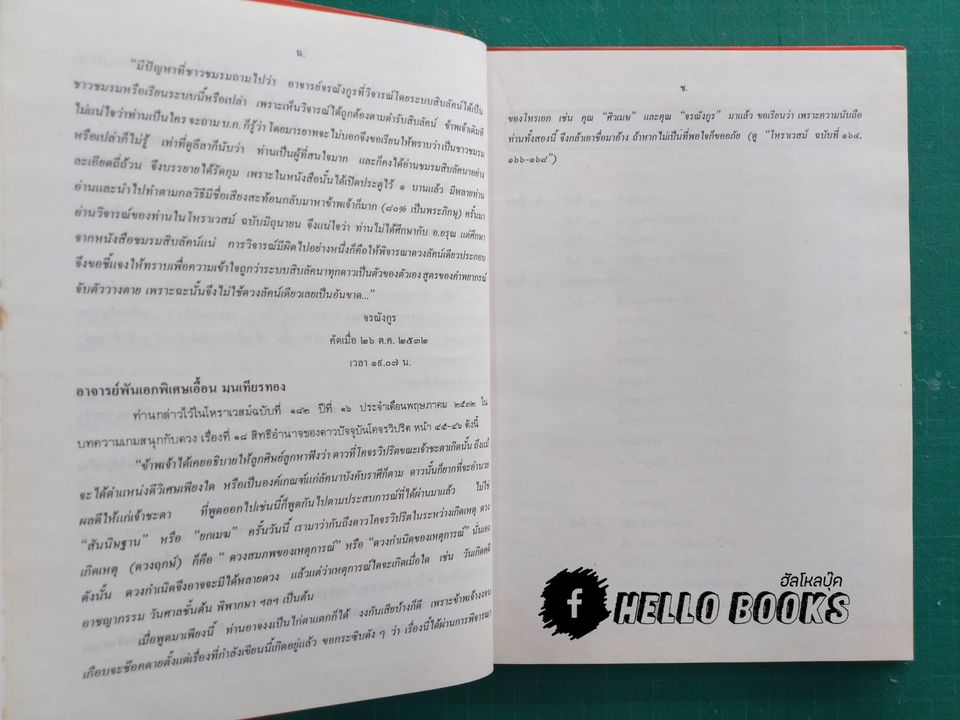 ฉ.
"มีปัญหาที่ชาวชมรมถามไปว่า อาจารย์จรณังกูรที่วิจารณ์โดยระบบสิบลัคน์ได้เป็น
ชาวชมรมหรือเรียนระบบนี้หรือเปล่า เพราะเห็นวิจารณ์ได้ถูกต้องตามตำรับสิบลัคน์ ข้าพเจ้าเดิมที
ไม่แน่ใจว่าท่านเป็นใคร จะถาม บ.ก. ก็รู้ว่า โดยมารยาทจะไม่บอกจึงขอเรียนให้ทราบว่าเป็นชาวชมรม
หรือเปล่าก็ไม่รู้ เท่าที่ดูลีลาก็นับว่า ท่านเป็นผู้ที่สนใจมาก และก็คงได้อ่านชมรมสิบลัคนาอย่าง
ละเอียดถี่ถ้วน จึงบรรยายได้รัดกุม เพราะในหนังสือนั้นได้เปิดประตูไว้ ๑ บานแล้ว มีหลายท่าน
อ่านและนำไปทำตามกลวิธีมีชื่อเสียงสะท้อนกลับมาหาข้าพเจ้าก็มาก (๘๐% เป็นพระภิกษุ) ครั้นมา
อ่านวิจารณ์ของท่านในโหราเวสม์ ฉบับมิถุนายน จึงแน่ใจว่า ท่านไม่ได้ศึกษากับ อ.อรุณ แต่ศึกษา
จากหนังสือชมรมสิบลัคน์แน่ การวิจารณ์มีผิดไปอย่างหนึ่งก็คือให้พิจารณาดวงลัคน์เดียวประกอบ
จึงขอชี้แจงให้ทราบเพื่อความเข้าใจถูกว่าระบบสิบลัคนาทุกดาวเป็นตัวของตัวเอง สูตรของคำพยากรณ์
จับตัววางตาย เพราะฉะนั้นจึงไม่ใช้ดวงลัคน์เดียวเลยเป็นอันขาด..."
จรณังกูร
คัดเมื่อ ๒๖ ต.ค. ๒๕๓๒
เวลา ๑๙.๐๗ น.
อาจารย์พันเอกพิเศษเอื้อน มนเทียรทอง
ท่านกล่าวไว้ในโหราเวสม์ฉบับที่ ๑๘๒ ปีที่ ๑๖ ประจำเดือนพฤษภาคม ๒๕๓๒ ใน
บทความเกมสนุกกับดวง เรื่องที่ ๑๘ สิทธิอำนาจของดาวปัจจุบันโคจรวิปริต หน้า ๔๕-๔๖ ดังนี้
"ข้าพเจ้าได้เคยอธิบายให้ลูกศิษย์ลูกหาฟังว่า ดาวที่โคจรวิปริตขณะเจ้าชะตาเกิดนั้น ถึงแม้
จะได้ตำแหน่งดีวิเศษเพียงใด หรือเป็นองค์เกณฑ์แก่ลัคนาบังคับราศีก็ตาม ดาวนั้นก็ยากที่จะอำนวย
ผลดีให้แก่เจ้าชะตา ที่พูดออกไปเช่นนี้ก็พูดกันไปตามประสบการณ์ที่ได้ผ่านมาแล้ว ไม่ใช่
"สันนิษฐาน" หรือ "ยกเมฆ" ครั้นวันนี้ เรามาว่ากันถึงดาวโคจรวิปริตในระหว่างเกิดเหตุ ดวง
เกิดเหตุ (ดวงฤกษ์) ก็คือ "ดวงสมภพของเหตุการณ์" หรือ "ดวงกำเนิดของเหตุการณ์" นั่นเอง
ดังนั้น ดวงกำเนิดจึงอาจจะมีได้หลายดวง แล้วแต่ว่าเหตุการณ์ใดจะเกิดเมื่อใด เช่น วันเกิดคดี
อาชญากรรม วันศาลชั้นต้น พิพากษา ฯลฯ เป็นต้น
เมื่อพูดมาเพียงนี้ ท่านอาจงงเป็นไก่ตาแตกก็ได้ งงกันเสียบ้างก็ดี เพราะข้าพเจ้างงจน
เกือบจะช๊อคตายตั้งแต่เรื่องที่กำลังเขียนนี้เกิดอยู่แล้ว ขอกระซิบดัง ๆ ว่า เรื่องนี้ได้ผ่านการพิจารณา
ช.
ของโหรเอก เช่น คุณ "ศิวเมษ" และคุณ "จรณังกูร" มาแล้ว ขอเรียนว่า เพราะความนับถือ
ท่านทั้งสองนี้ จึงกล้าเอาชื่อมาอ้าง ถ้าหากไม่เป็นที่พอใจก็ขออภัย (ดู "โหราเวสม์ ฉบับที่ ๑๖๔,
๑๖๖-๑๖๘")
ฮัลโหลบุ๊ค
f HELLO BOOKS